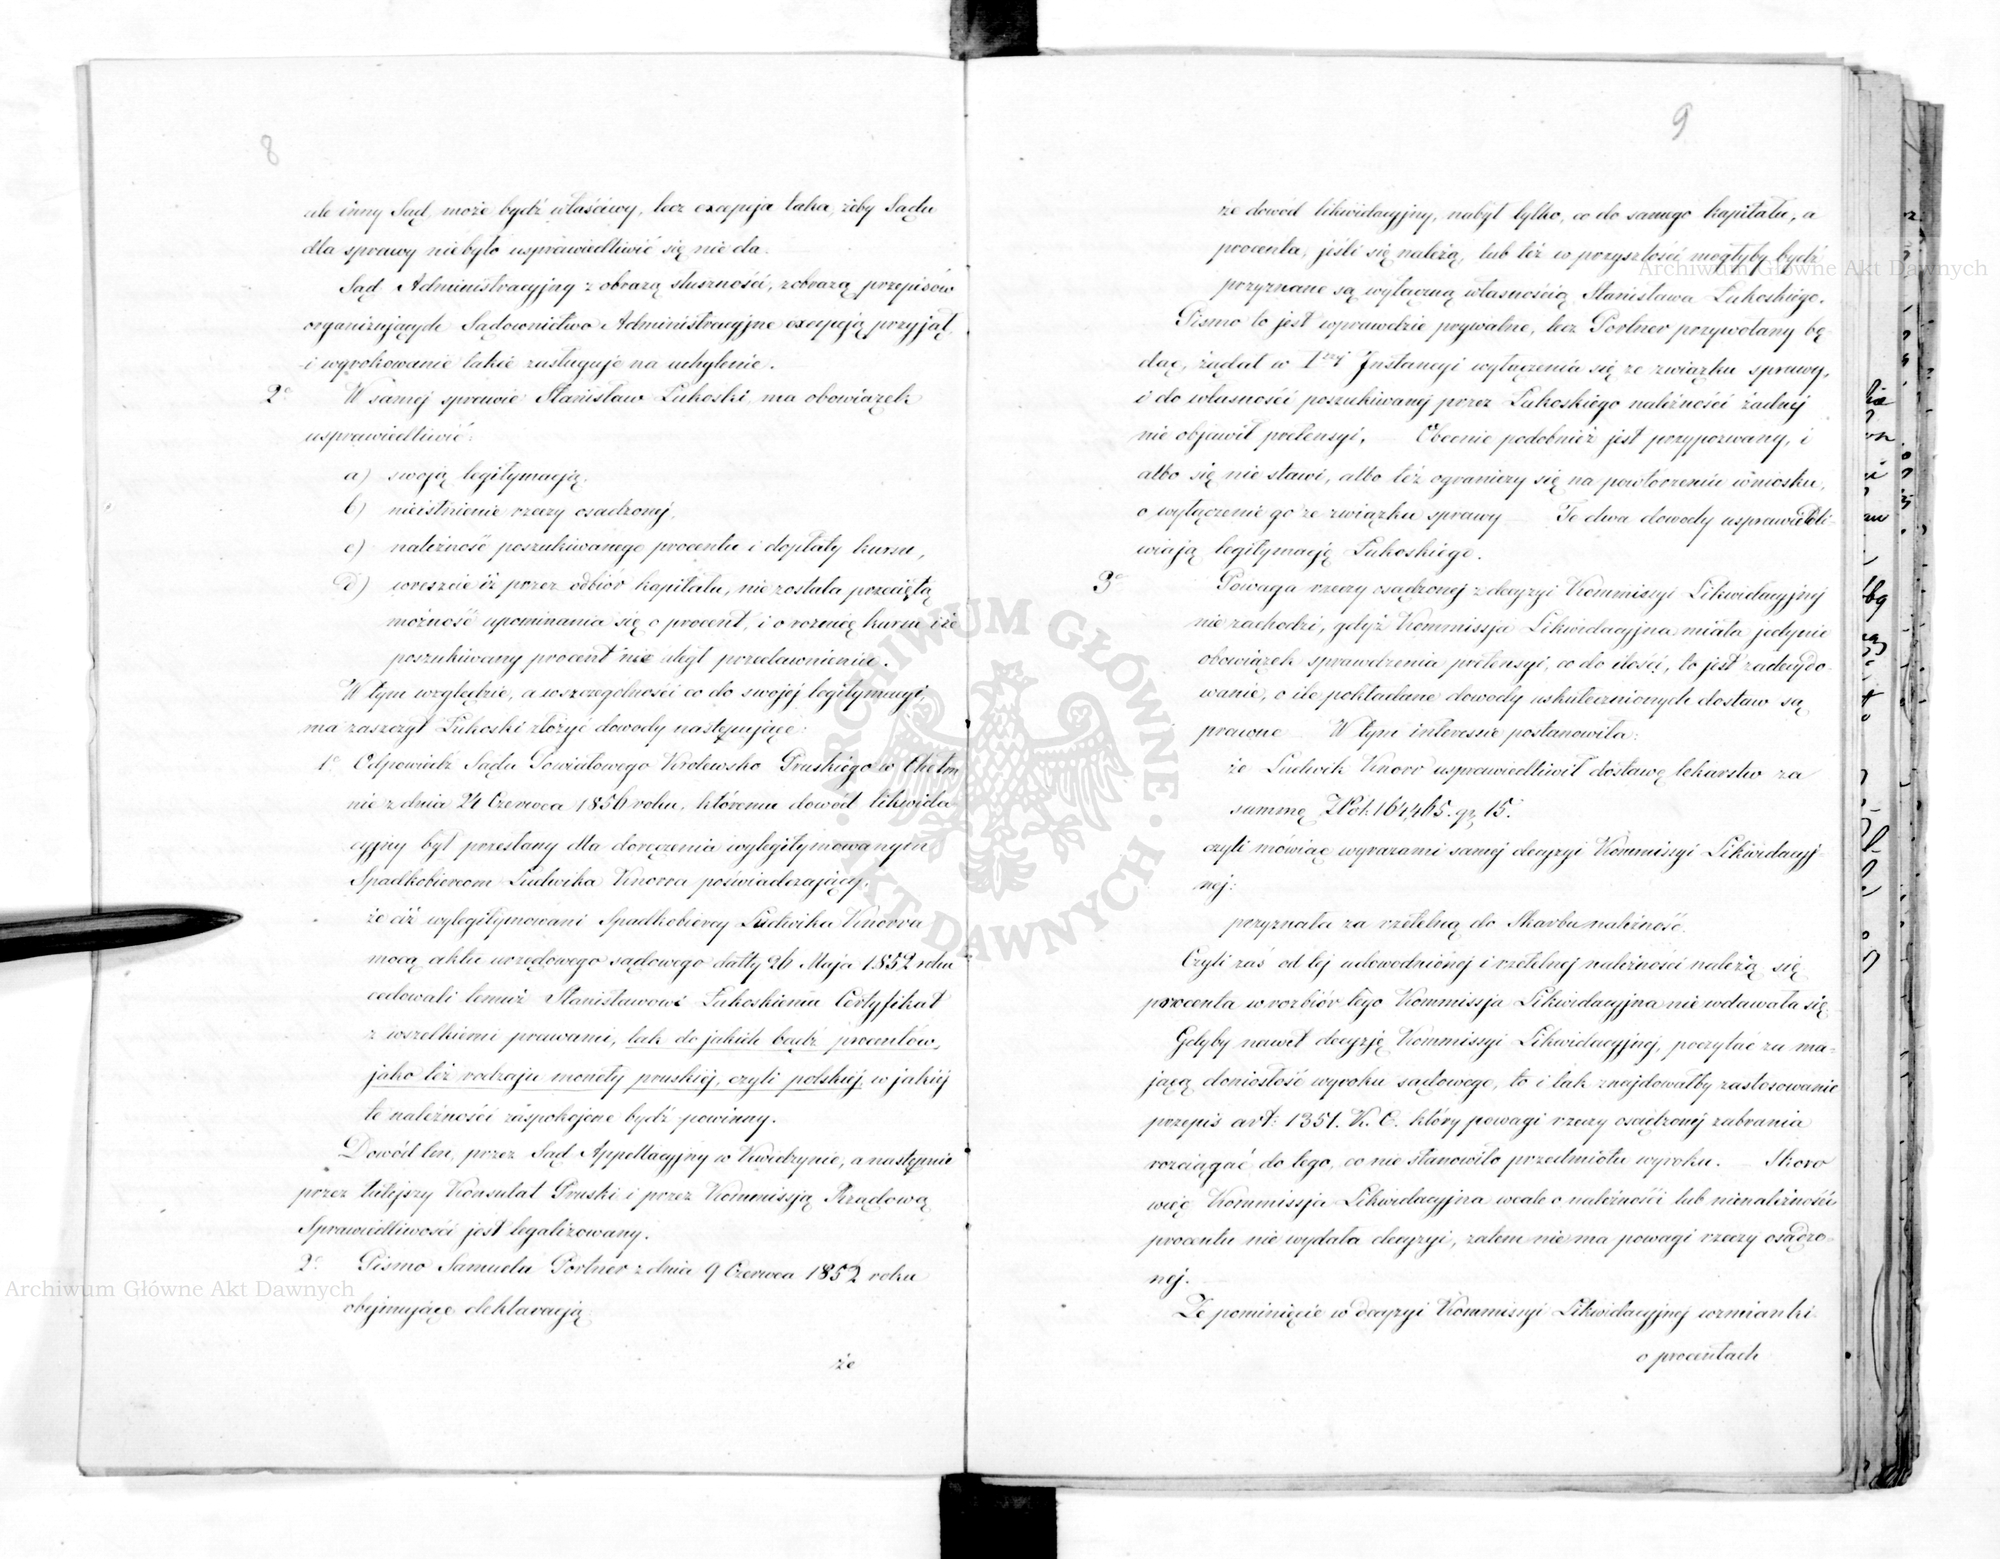 8
ale inny Sąd, może bydź właściwy, lecz excepcja taka, żeby Sądu
dla sprawy niebyło usprawiedliwić się nie da.
Sąd Administracyjny z obrazą słuszności, z obrazą przepisów
organizujących Sądownictwo Administracyjne excepcją przyjął,
i wyrokowanie takie zasługuje na uchylenie.
2o W samej sprawie Stanisław Łukoski, ma obowiązek
usprawiedliwić:
a) swoją legitymacją,
b) nieistnienie rzeczy osądzonej,
c) należność poszukiwanego procentu i dopłaty kursu,
d) wreszcie iż przez odbiór kapitału, nie została przeciętą
możność upominania się o procent, i o roznicę kursu i że
poszukiwany procent nie uległ przedawnieniu.
W tym względzie, a w szczegolności co do swojej legitymacyi,
ma zaszczyt Łukoski złożyć dowody następujące:
1o Odpowiedz Sądu Powiatowego Krolewsko Pruskiego w Chełm
nie z dnia 24 Czerwca 1856 roku, któremu dowód likwida
cyjny był przesłany dla doręczenia wylegitymowanym
Spadkobiercom Ludwika Knorra poświadczający,
że ciż wylegitymowani Spadkobiercy Ludwika Knorra
mocą aktu urzędowego sądowego datty 26 Maja 1852 roku
cedowali temuż Stanisławowi Łukoskiemu Certyfikat
z wszelkiemi prawami, tak do jakich bądź procentów,
jako też rodzaju monety pruskiej, czyli polskiej, w jakiej
te należności zaspokojone bydź powinny.
Dowód ten, przez Sąd Appellacyjny w Kwidzynie, a następnie
przez tutejszy Konsulat Pruski i przez Kommissją Rządową
Sprawiedliwości jest legalizowany.
2o Pismo Samuela Portner z dnia 9 Czerwca 1852 roku
obejmujące deklaracją:
że
9
że dowód likwidacyjny, nabył tylko, co do samego kapitału, a
procenta, jeśli się należą, lub też w przyszłości mogłyby bydź
przyznane są wyłączną własnością Stanisława Łukoskiego.
Pismo to jest wprawdzie prywatne, lecz Portner przywołany bę-
dąc, żądał w 1szej Instancyi wyłączenia się ze związku sprawy,
i do własności poszukiwanej przez Łukoskiego należności żadnej
nie objawił pretensyi, — Obecnie podobnież jest przypozwany, i
albo się nie stawi, albo też ograniczy się na powtórzeniu wniosku,
o wyłączenie go ze związku sprawy — Te dwa dowody usprawiedli-
wiają legitymację Łukoskiego.
3o Powaga rzeczy osądzonej z decyzyi Kommissyi Likwidacyjnej
nie zachodzi, gdyż Kommissja Likwidacyjna miała jedynie
obowiązek sprawdzenia pretensyi, co do ilości, to jest zadecydo-
wanie, o ile pokładane dowody uskutecznionych dostaw są
prawne — W tym interesie postanowiła:
że Ludwik Knorr usprawiedliwił dostawę lekarstw za
summę ZłPol: 164,465. gr 15.
czyli mówiąc wyrazami samej decyzyi Kommissyi Likwidacyj-
nej:
przyznała za rzetelną do Skarbu należność.
Czyli zaś od tej udowodnionej i rzetelnej należności należą się
procenta w rozbiór tego Kommissja Likwidacyjna nie wdawała się.
Gdyby nawet decyzję Kommissyi Likwidacyjnej, poczytać za ma-
jącą doniosłość wyroku sądowego, to i tak znajdowałby zastosowanie
przepis art: 1351. K. C. który powagi rzeczy osądzonej zabrania
rozciągać do tego, co nie stanowiło przedmiotu wyroku. — Skoro
więc Kommissja Likwidacyjna wcale o należności lub nienależności
procentu nie wydała decyzyi, zatem nie ma powagi rzeczy osądzo-
nej.
Że pominięcie w decyzyi Kommissyi Likwidacyjnej wzmianki
o procentach
Archiwum Główne Akt Dawnych
Archiwum Główne Akt Dawnych
ARCHIWUM GŁÓWNE AKT DAWNYCH